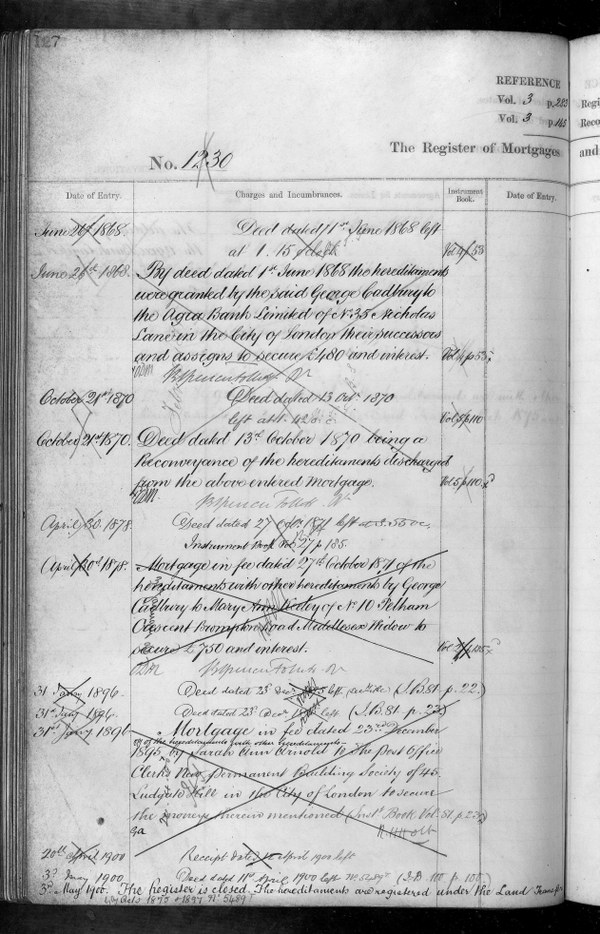 127
REFERENCE
Vol. 3 p. 283
Vol. 3 p. 145
Regi
Reco
No. 1230
The Register of Mortgages and
Date of Entry.
Charges and Incumbrances.
Instrument Book.
Date of Entry.
June 26th 1868
Deed dated 1st June 1868 left
at 1.15 o'clock
Vol 4 p 53
June 26th 1868.
By deed dated 1st June 1868 the hereditaments
were granted by the said George Cadbury to
the Agra Bank Limited of No 35 Nicholas
Lane in the City of London their successors
and assigns to secure £480 and interest.
Vol 4 p 53
October 21st 1870
Deed dated 13 Octr 1870
left at
Vol 5 p 110
October 21st 1870.
Deed datd 13th October 1870 being a
Reconveyance of the hereditaments discharged
from the above entered Mortgage.
Vol 5 p 110
April 30. 1878.
Deed dated 27 Octr 1871 left at 3.55 oc.
Instrument Book Vol 27 p 185.
April 30th 1878.
Mortgage in fee dated 27th October 1871 of the
hereditaments with other hereditaments by George
Cadbury to Mary Ann of No 10 Pelham
Crescent Brompton Road Middlesex Widow to
secure £750 and interest.
31 Jany 1896.
Deed dated 23d Decr left (I.B. 81. p. 22.)
31st Jany 1896.
Deed dated 23d Decr left. (I.B. 81. p. 23)
31st Jany 1896
Mortgage in fee dated 23rd December
of the hereditaments with other hereditaments
1895, by Sarah Ann Arnold to the Post Office
Clerks New Permanent Building Society of 45
Ludgate Hill in the City of London to secure
the moneys therein mentioned (Inst. Book Vol. 81 p. 23)
20th April 1900
Receipt dated April 1900 left
3d May 1900
Deed datd 11th April 1900 left No 5489 (I.B. 100 p. 100.)
3d May 1900. The Register is closed. The hereditaments are registered under the Land Transfer
Acts 1875 & 1897 No 5489